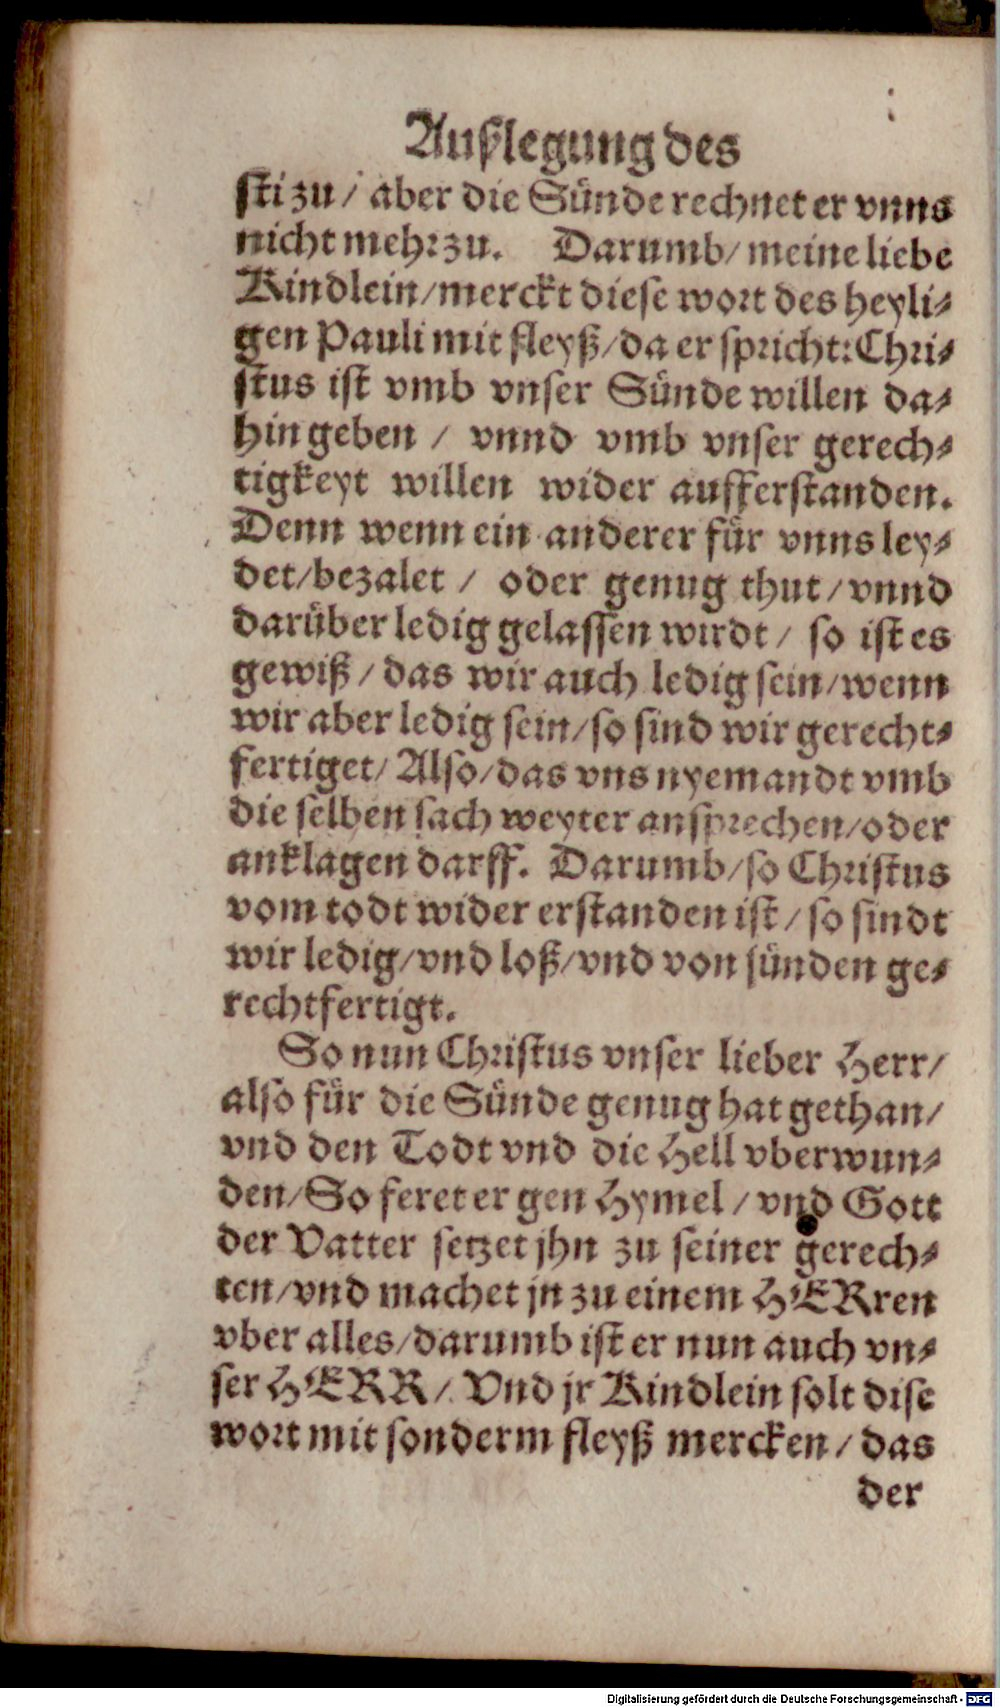 Außlegung des
sti zu / aber die Sünde rechnet er vnns
nicht mehr zu. Darumb / meine liebe
Kindlein / merckt diese wort des heyli-
gen Pauli mit fleyß / da er spricht: Chri-
stus ist vmb vnser Sünde willen da-
hin geben / vnnd vmb vnser gerech-
tigkeyt willen wider aufferstanden.
Denn wenn ein anderer für vnns ley-
det / bezalet / oder genug thut / vnnd
darüber ledig gelassen wirdt / so ist es
gewiß / das wir auch ledig sein / wenn
wir aber ledig sein / so sind wir gerecht-
fertiget / Also / das vns nyemandt vmb
die selben sach weyter ansprechen / oder
anklagen darff. Darumb / so Christus
vom todt wider erstanden ist / so sindt
wir ledig / vnd loß / vnd von sünden ge-
rechtfertigt.
So nun Christus vnser lieber Herr /
also für die Sünde genug hat gethan /
vnd den Todt vnd die Hell vberwun-
den / So feret er gen Hymel / vnd Gott
der Vatter setzet jhn zu seiner gerech-
ten / vnd machet jn zu einem HERren
vber alles / darumb ist er nun auch vn-
ser HERR / Vnd jr Kindlein solt dise
wort mit sonderm fleyß mercken / das
der
Digitalisierung gefördert durch die Deutsche Forschungsgemeinschaft - DFG